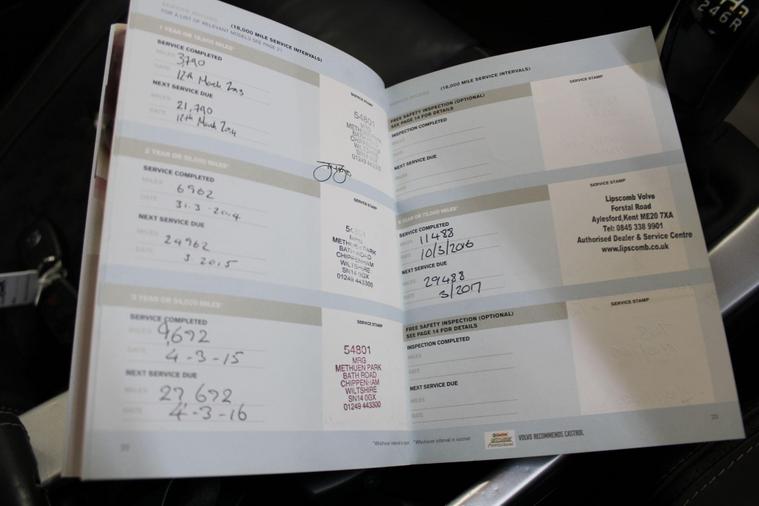 (18,000 MILE SERVICE INTERVALS)
FOR A LIST OF RELEVANT MODELS SEE PAGE
1 YEAR OR 18,000 MILES*
SERVICE COMPLETED
MILES 3790
DATE 12th March 2013
NEXT SERVICE DUE
MILES 21,790
DATE 12th March 2014
SERVICE STAMP
54801
MRG
METHUEN PARK
BATH ROAD
CHIPPENHAM
WILTSHIRE
SN14 0GX
01249 443300
2 YEAR OR 36,000 MILES*
SERVICE COMPLETED
MILES 6962
DATE 31.3.2014
NEXT SERVICE DUE
MILES 24962
DATE 3.2015
SERVICE STAMP
MRG
METHUEN PARK
BATH ROAD
CHIPPENHAM
WILTSHIRE
SN14 0GX
01249 443300
3 YEAR OR 54,000 MILES*
SERVICE COMPLETED
MILES 9,692
DATE 4-3-15
NEXT SERVICE DUE
MILES 27,692
DATE 4-3-16
SERVICE STAMP
54801
MRG
METHUEN PARK
BATH ROAD
CHIPPENHAM
WILTSHIRE
SN14 0GX
01249 443300
(18,000 MILE SERVICE INTERVALS)
FREE SAFETY INSPECTION (OPTIONAL)
SEE PAGE 14 FOR DETAILS
INSPECTION COMPLETED
MILES
DATE
NEXT SERVICE DUE
MILES
DATE
SERVICE STAMP
YEAR OR 72,000 MILES*
SERVICE COMPLETED
MILES 11488
DATE 10/3/2016
NEXT SERVICE DUE
MILES 29488
DATE 3/2017
SERVICE STAMP
Lipscomb Volvo
Forstal Road
Aylesford,Kent ME20 7XA
Tel: 0845 338 9901
Authorised Dealer & Service Centre
www.lipscomb.co.uk
FREE SAFETY INSPECTION (OPTIONAL)
SEE PAGE 14 FOR DETAILS
INSPECTION COMPLETED
MILES
DATE
NEXT SERVICE DUE
MILES
DATE
SERVICE STAMP
*Whichever is soonest
Castrol
VOLVO RECOMMENDS CASTROL
246R